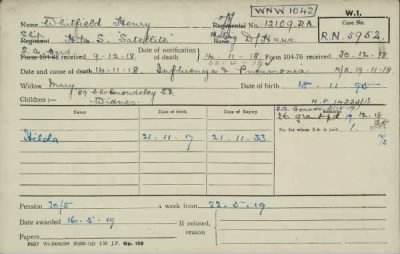 WNW 1042 W.1.
Name Whitfield Henry Regimental No. 12109.D.A. Case No.
Ship Regiment H.M.S. "Satellite" Rating D/Hand R.N. 5952.
S.a. Card Date of notification of death
Form 104-88 received 9.12.18 14-11-18 Form 104-76 received 30.12.18
Date and cause of death 14-11-18. Influenza & Pneumonia N/K 19-11-18
Widow Mary Date of birth 18-11-95
89 Cholmondeley St
Children:— Widnes
Date of Birth Date of Expiry
Hilda 21-11-17 21-11-33 No. for whom S.A. is paid 1
Pension 20/5 a week from 22.5.19
Date awarded 16.5.19 If refused, reason